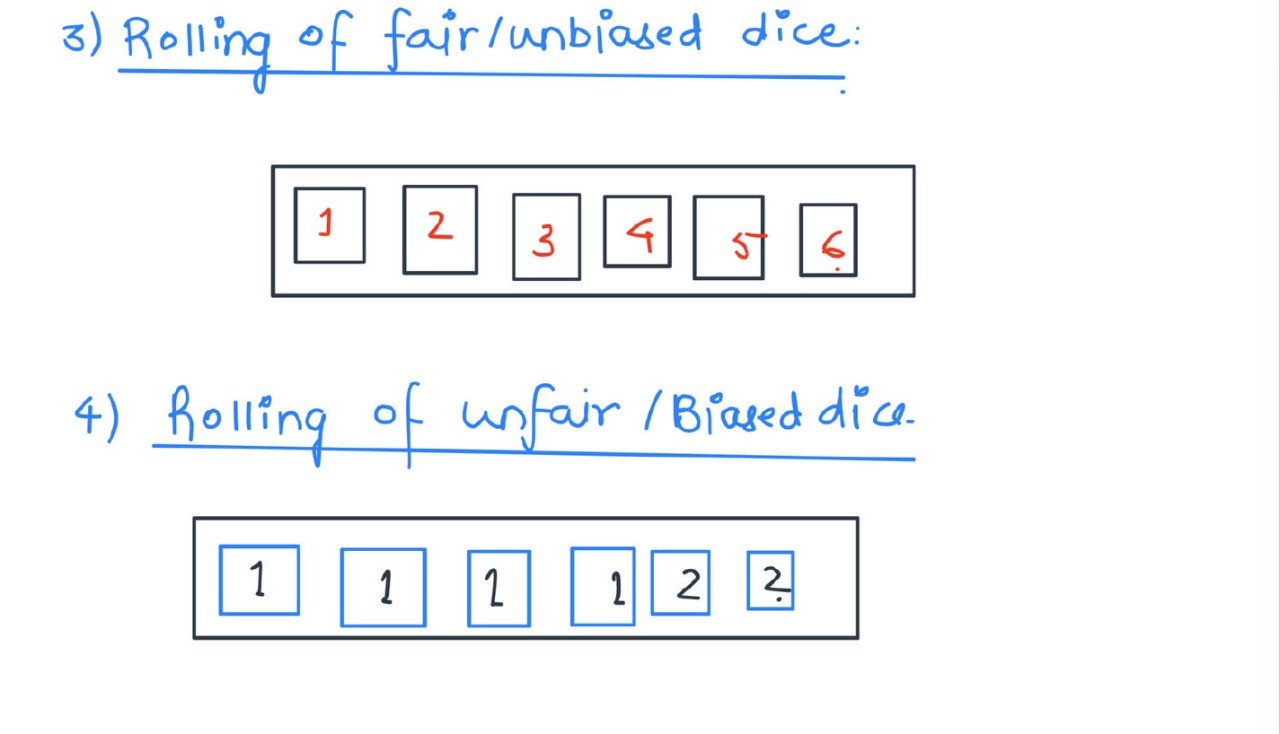 3) Rolling of fair/unbiased dice:
1 2 3 4 5 6
4) Rolling of unfair / Biased dice.
1 1 1 1 2 2